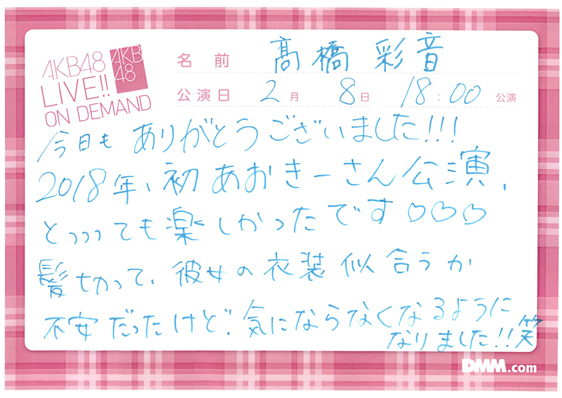 AKB48
LIVE!!
ON DEMAND
AKB
48
名前 髙橋 彩音
公演日 2月 8日 18:00 公演
今日も ありがとうございました!!!
2018年、初 あおきーさん公演、
とっっっても楽しかったです♡♡♡
髪切って、彼女の衣装似合うか
不安だったけど、気にならなくなるように
なりました!!笑
DMM.com